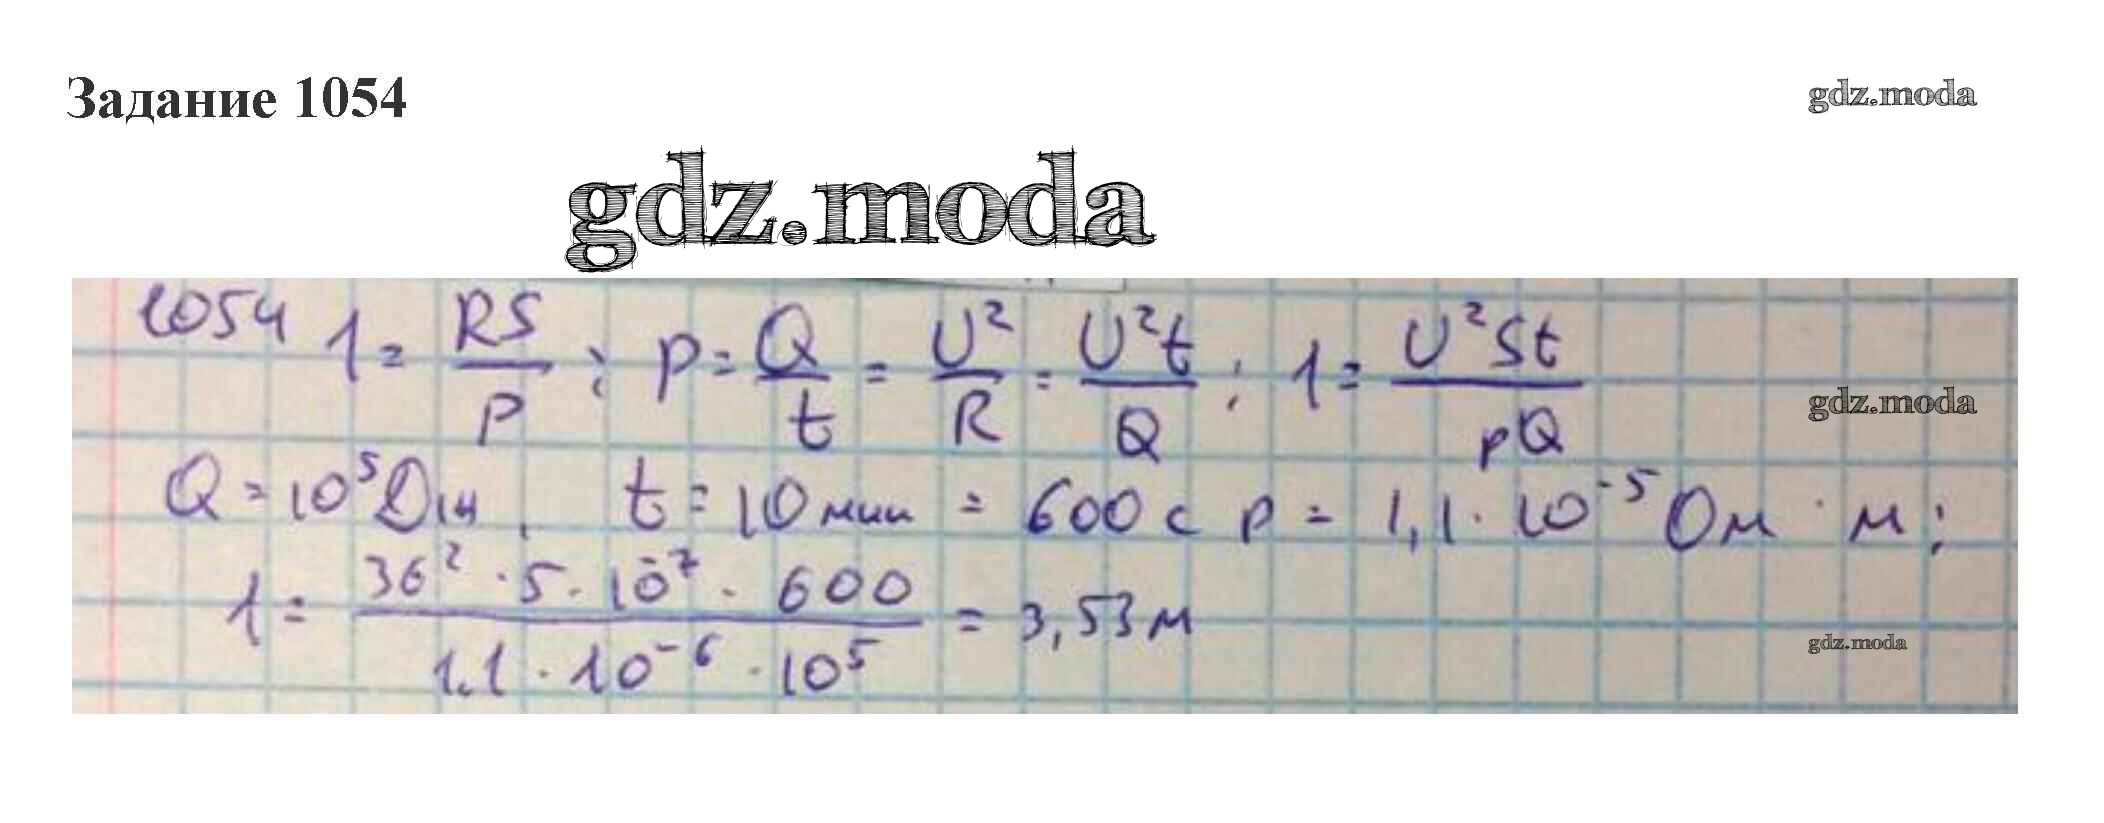 Задание 1054
gdz.moda
gdz.moda
1054 l = RS/P ; p = Q/t = U²/R = U²t/Q ; l = U²St/pQ
gdz.moda
Q = 10⁵ Дж, t = 10 мин = 600 с p = 1,1 · 10⁻⁵ Ом · м;
l = 36² · 5 · 10⁻⁷ · 600 / 1.1 · 10⁻⁶ · 10⁵ = 3,53 м
gdz.moda